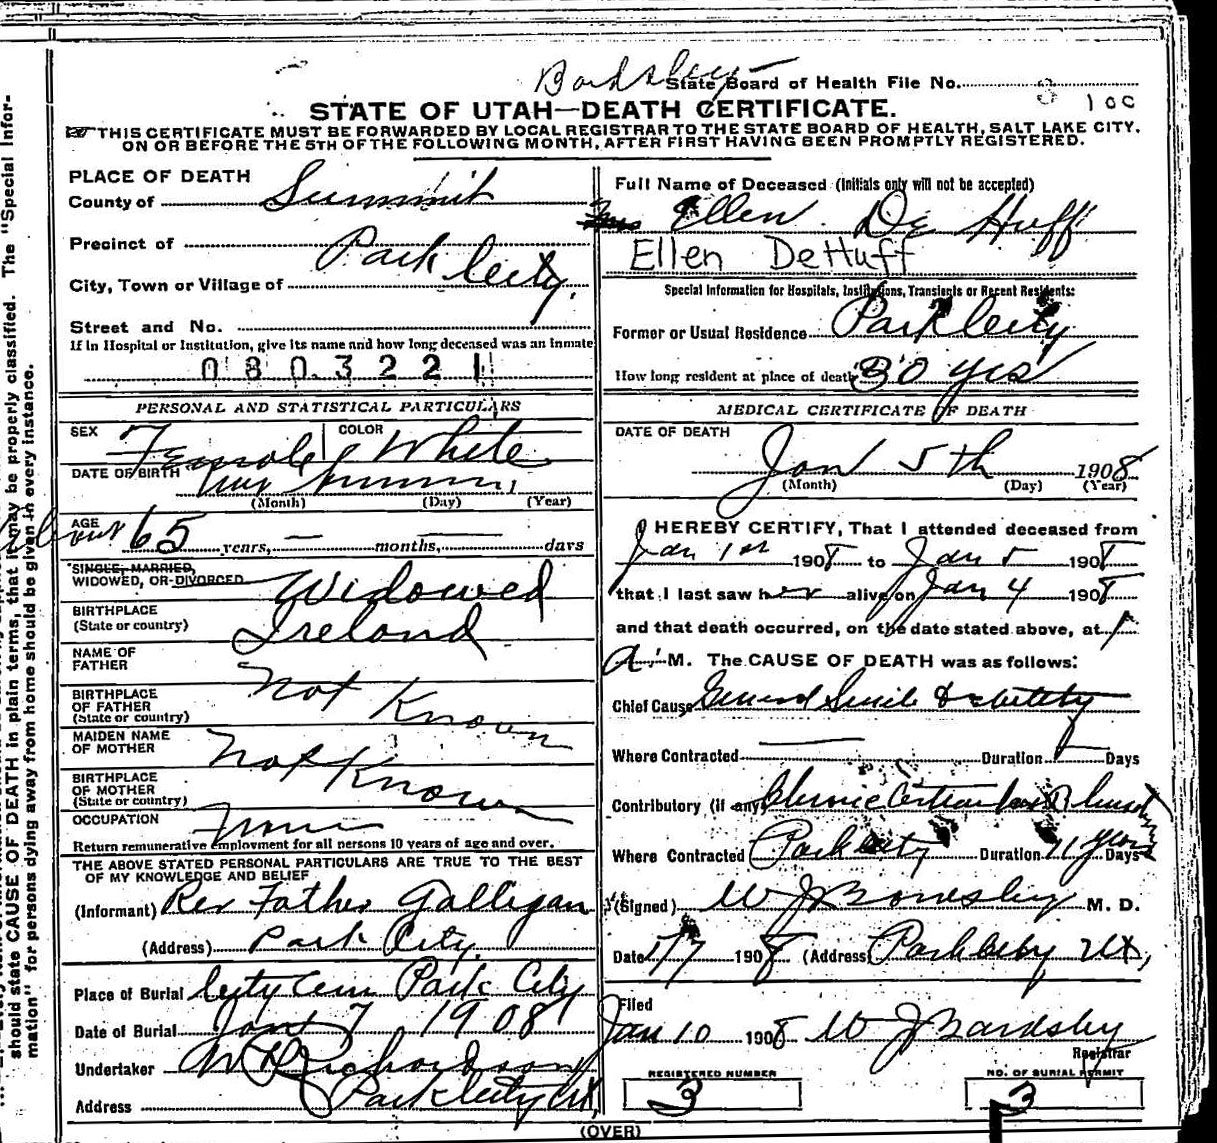 Bardsley
State Board of Health File No.
3 100
STATE OF UTAH—DEATH CERTIFICATE.
THIS CERTIFICATE MUST BE FORWARDED BY LOCAL REGISTRAR TO THE STATE BOARD OF HEALTH, SALT LAKE CITY,
ON OR BEFORE THE 5TH OF THE FOLLOWING MONTH, AFTER FIRST HAVING BEEN PROMPTLY REGISTERED.
PLACE OF DEATH
County of Summit
Precinct of
Park City
City, Town or Village of
Street and No.
If in Hospital or Institution, give its name and how long deceased was an inmate
0803221
PERSONAL AND STATISTICAL PARTICULARS
SEX Female COLOR White
DATE OF BIRTH
(Month) (Day) (Year)
AGE About 65 years, — months, — days
SINGLE, MARRIED,
WIDOWED, OR DIVORCED Widowed
BIRTHPLACE
(State or country) Ireland
NAME OF
FATHER
Not Known
BIRTHPLACE
OF FATHER
(State or country)
MAIDEN NAME
OF MOTHER
Not Known
BIRTHPLACE
OF MOTHER
(State or country)
OCCUPATION None
Return remunerative employment for all persons 10 years of age and over.
THE ABOVE STATED PERSONAL PARTICULARS ARE TRUE TO THE BEST
OF MY KNOWLEDGE AND BELIEF
(Informant) Rev Father Galligan
(Address) Park City
Place of Burial City Cem Park City
Date of Burial Jany 7 1908
Undertaker Richardson
Address Park City Ut,
Full Name of Deceased (Initials only will not be accepted)
Mrs Ellen De Huff
Ellen DeHuff
Special Information for Hospitals, Institutions, Transients or Recent Residents:
Former or Usual Residence Park City
How long resident at place of death 30 yrs
MEDICAL CERTIFICATE OF DEATH
DATE OF DEATH
Jan 5th 1908
(Month) (Day) (Year)
I HEREBY CERTIFY, That I attended deceased from
Jan 1st 1908 to Jan 5 1908
that I last saw her alive on Jan 4 1908
and that death occurred, on the date stated above, at 1
A. M. The CAUSE OF DEATH was as follows:
Chief Cause General Senile Debility
Where Contracted — Duration Days
Contributory (if any) Chronic
Where Contracted Park City Duration 11 years Days
(Signed) W J Bardsley M. D.
Date 1/7 1908 (Address) Park City Ut,
Filed
Jan 10 1908 W J Bardsley
Registrar
REGISTERED NUMBER
3
NO. OF BURIAL PERMIT
3
(OVER)
The "Special Infor-
should state CAUSE OF DEATH in plain terms, that it may be properly classified.
mation" for persons dying away from home should be given in every instance.